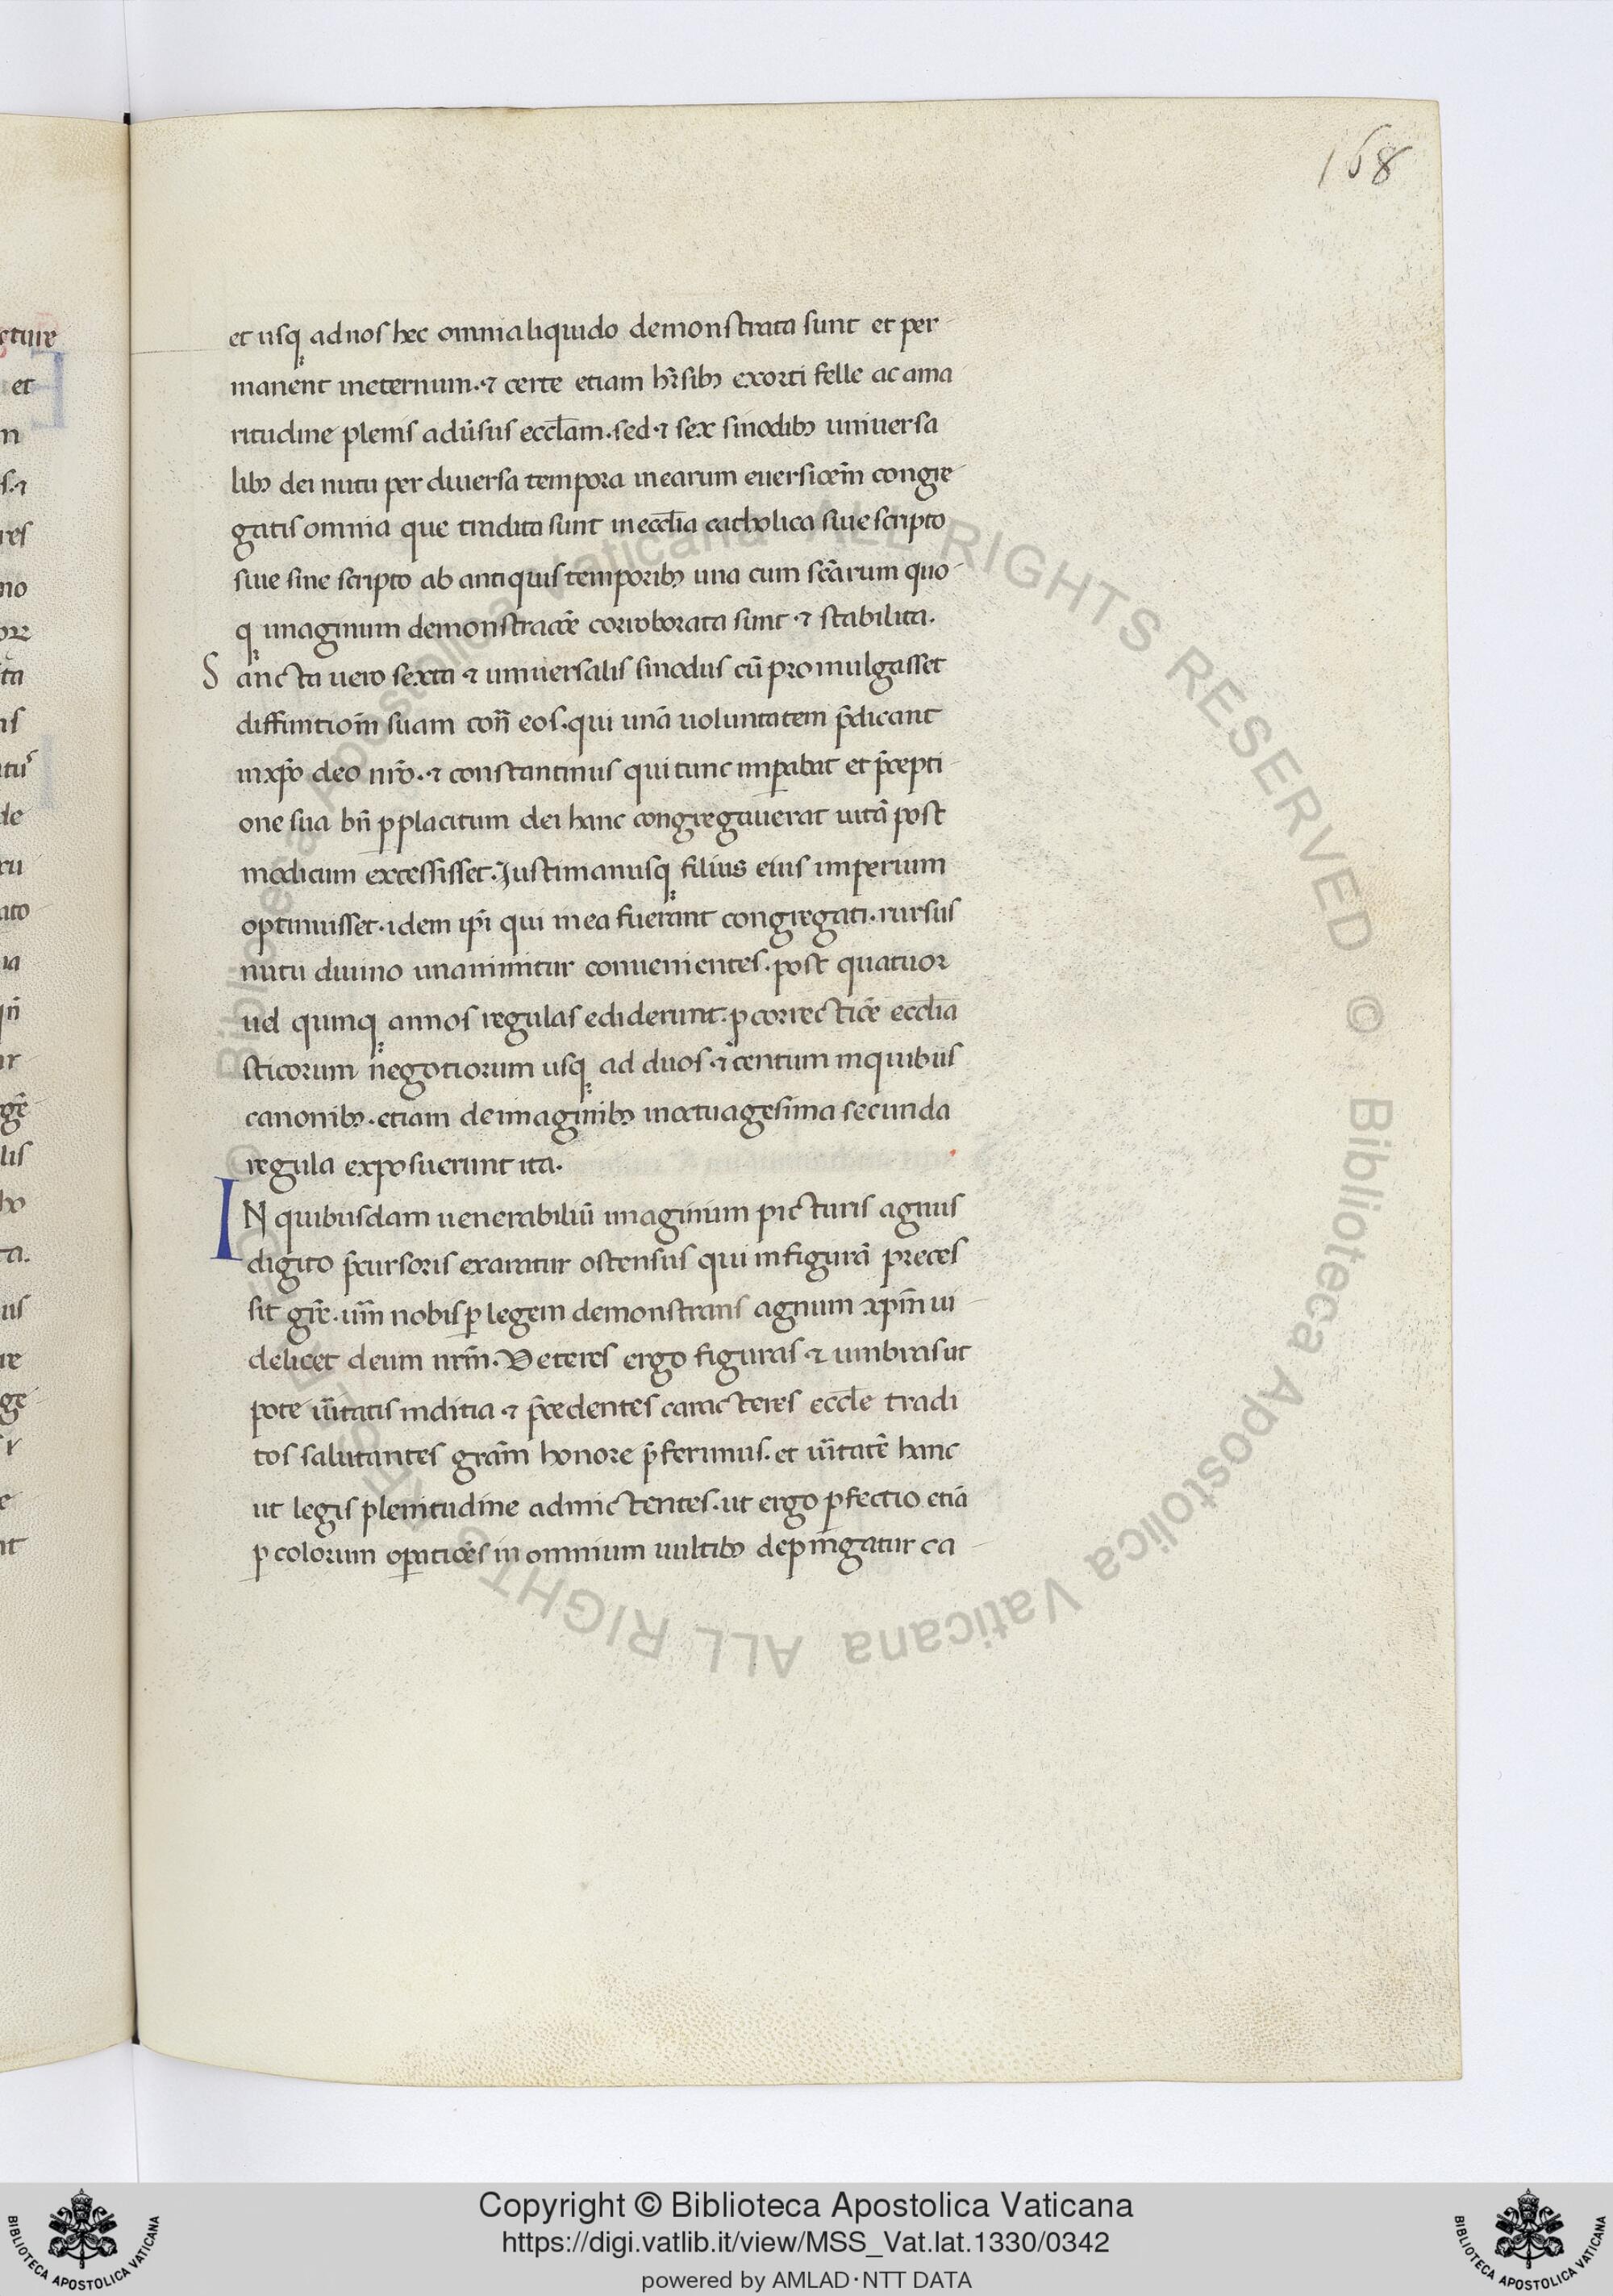 168
et usq; ad nos hec omnia liquido demonstrata sunt et per
manent ineternum. ⁊ certe etiam hr̃sibꝫ exorti felle ac ama
ritudine plenis adũsus eccl̃am. sed ⁊ sex sinodibꝫ uniuersa
libꝫ dei nutu per diuersa tempora inearum euersioẽm congre
gatis omnia que tradita sunt ineccl̃ia catholica siue scripto
siue sine scripto ab antiquis temporibꝫ una cum scãrum quo
q; imaginum demonstracõe corroborata sunt ⁊ stabilita.
Sancta uero sexta ⁊ uniuersalis sinodus cũ promulgasset
diffinitioñ suam coñ eos. qui unã uoluntatem p̃dicant
inxp̃o deo nr̃o. ⁊ constantinus qui tunc imꝑabat et p̃cepti
one sua bñ ꝑ placitum dei hanc congregauerat uitã post
modicum excessisset. Justinianusq; filius eius imperium
optinuisset. idem ip̃i qui inea fuerant congregati. rursus
nutu diuino unanimitur conuenientes. post quatuor
uel quinq; annos regulas ediderunt. ꝑ correctiõe eccl̃ia
sticorum negotiorum usq; ad duos ⁊ centum inquibus
canonibꝫ. etiam deimaginibꝫ inoctuagesima secunda
regula exposuerunt ita.
IN quibusdam uenerabiliũ imaginum picturis agnus
digito p̃cursoris exaratur ostensus qui infigurã preces
sit gr̃e. um̃ nobis ꝑ legem demonstrans agnum xp̃m ui
delicet deum nr̃m. Veteres ergo figuras ⁊ umbras ut
pote ũitatis inditia ⁊ p̃cedentes caracteres eccl̃e tradi
tos salutantes gram̃ honore p̃ferimus. et ũitatẽ hanc
ut legis plenitudine admictentes. ut ergo ꝑfectio etiã
ꝑ colorum oꝑatiões in omnium uultibꝫ depingatur ca
© Biblioteca Apostolica Vaticana ALL RIGHTS RESERVED © Biblioteca Apostolica Vaticana ALL RIGHTS RESERVED
Copyright © Biblioteca Apostolica Vaticana
https://digi.vatlib.it/view/MSS_Vat.lat.1330/0342
powered by AMLAD·NTT DATA
BIBLIOTECA APOSTOLICA VATICANA
BIBLIOTECA APOSTOLICA VATICANA